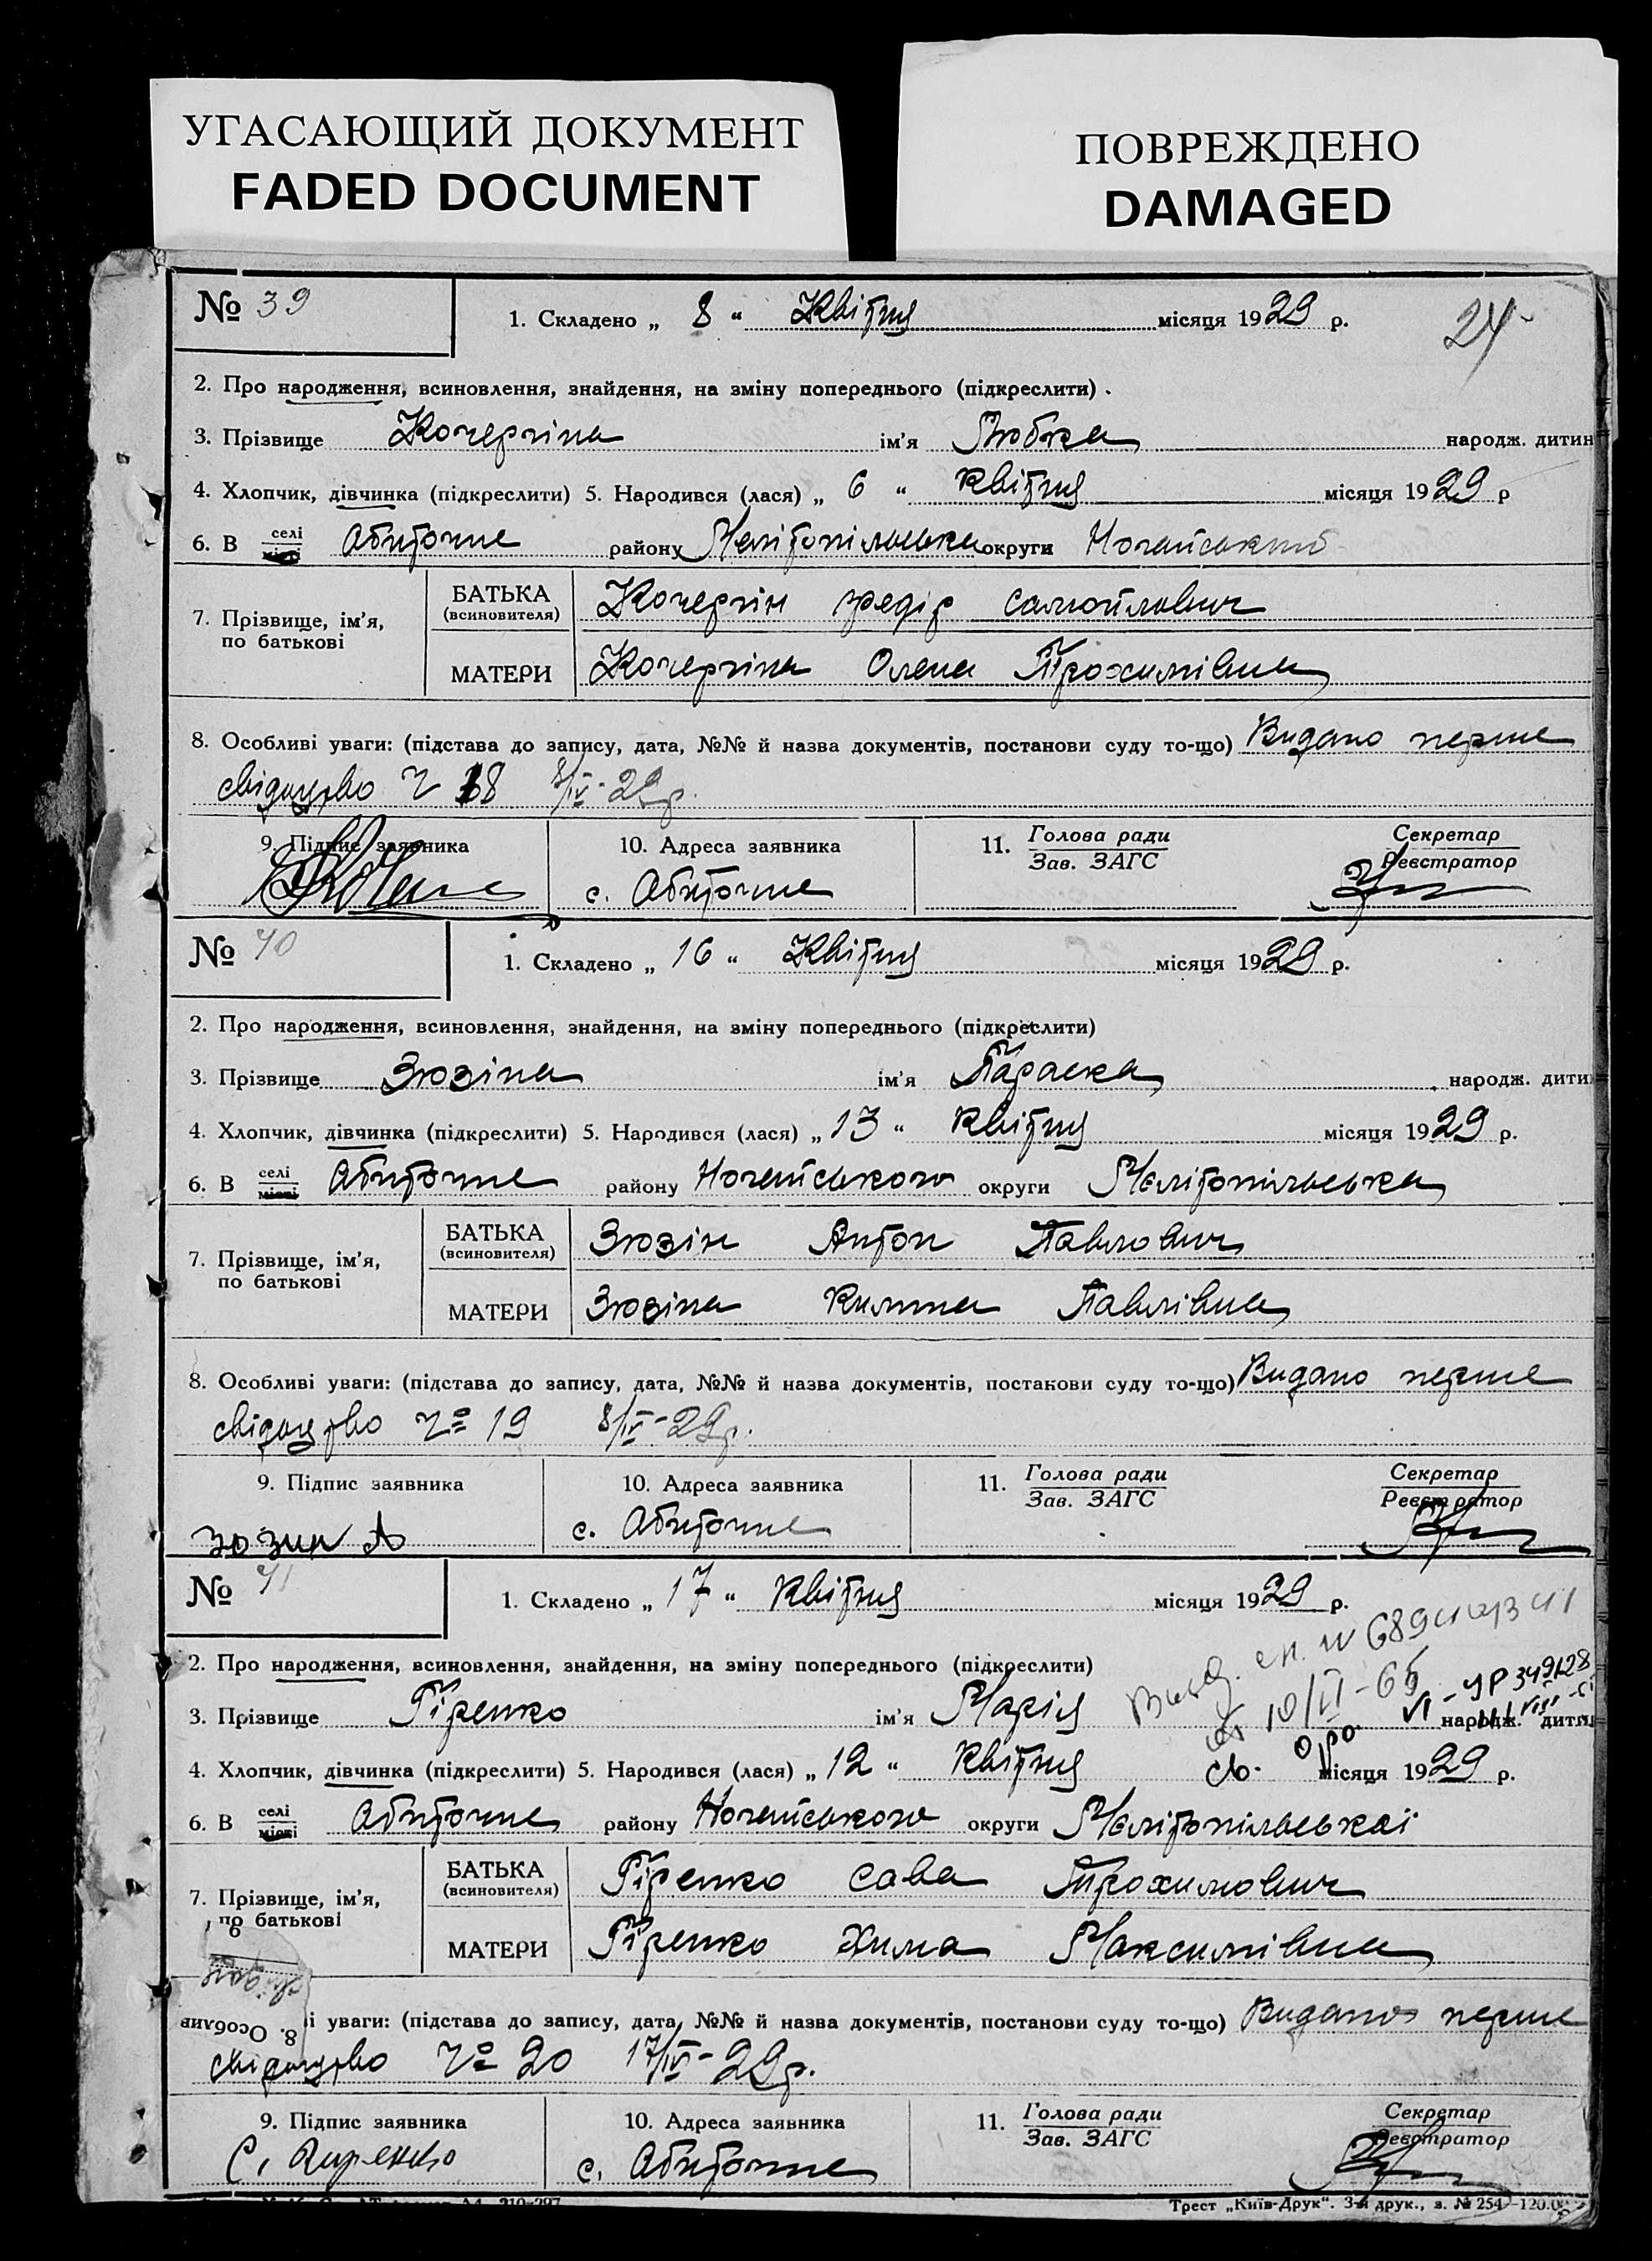 УГАСАЮЩИЙ ДОКУМЕНТ
FADED DOCUMENT
ПОВРЕЖДЕНО
DAMAGED
№ 39
1. Складено „ 8 “ Квітня місяця 1929 р.
24
2. Про народження, всиновлення, знайдення, на зміну попереднього (підкреслити) .
3. Прізвище Кочергіна ім’я Любка народж. дитин
4. Хлопчик, дівчинка (підкреслити) 5. Народився (лася) „ 6 “ Квітня місяця 1929 р
6. В селі місті Обиточне району Мелітопільська округи Ногайський
7. Прізвище, ім’я, по батькові
БАТЬКА (всиновителя) Кочергін Федір Самойлович
МАТЕРИ Кочергіна Олена Трохимівна
8. Особливі уваги: (підстава до запису, дата, №№ й назва документів, постанови суду то-що) Видано перше
свідоцтво Ч 18 8/IV-29р.
9. Підпис заявника
10. Адреса заявника
с. Обиточне
11. Голова ради
Зав. ЗАГС
Секретар
Реєстратор
№ 40
1. Складено „ 16 “ Квітня місяця 1929 р.
2. Про народження, всиновлення, знайдення, на зміну попереднього (підкреслити)
3. Прізвище Зюзіна ім’я Параска народж. дити
4. Хлопчик, дівчинка (підкреслити) 5. Народився (лася) „ 13 “ Квітня місяця 1929 р.
6. В селі місті Обиточне району Ногайського округи Мелітопільська
7. Прізвище, ім’я, по батькові
БАТЬКА (всиновителя) Зюзін Антон Павлович
МАТЕРИ Зюзіна Килина Павлівна
8. Особливі уваги: (підстава до запису, дата, №№ й назва документів, постанови суду то-що) Видано перше
свідоцтво Ч 19 8/IV-29р.
9. Підпис заявника
зюзин А
10. Адреса заявника
с. Обиточне
11. Голова ради
Зав. ЗАГС
Секретар
Реєстратор
№ 41
1. Складено „ 17 “ Квітня місяця 1929 р.
2. Про народження, всиновлення, знайдення, на зміну попереднього (підкреслити)
3. Прізвище Гіренко ім’я Марія народж. дитин
4. Хлопчик, дівчинка (підкреслити) 5. Народився (лася) „ 12 “ Квітня місяця 1929 р.
6. В селі місті Обиточне району Ногайського округи Мелітопільської
7. Прізвище, ім’я, по батькові
БАТЬКА (всиновителя) Гіренко Сава Трохимович
МАТЕРИ Гіренко Хима Максимівна
8. Особлив і уваги: (підстава до запису, дата, №№ й назва документів, постанови суду то-що) Видано перше
свідоцтво Ч 20 17/IV-29р.
9. Підпис заявника
С. Гиренко
10. Адреса заявника
с. Обиточне
11. Голова ради
Зав. ЗАГС
Секретар
Реєстратор
Трест „Київ-Друк“. 3-я друк., з. № 254